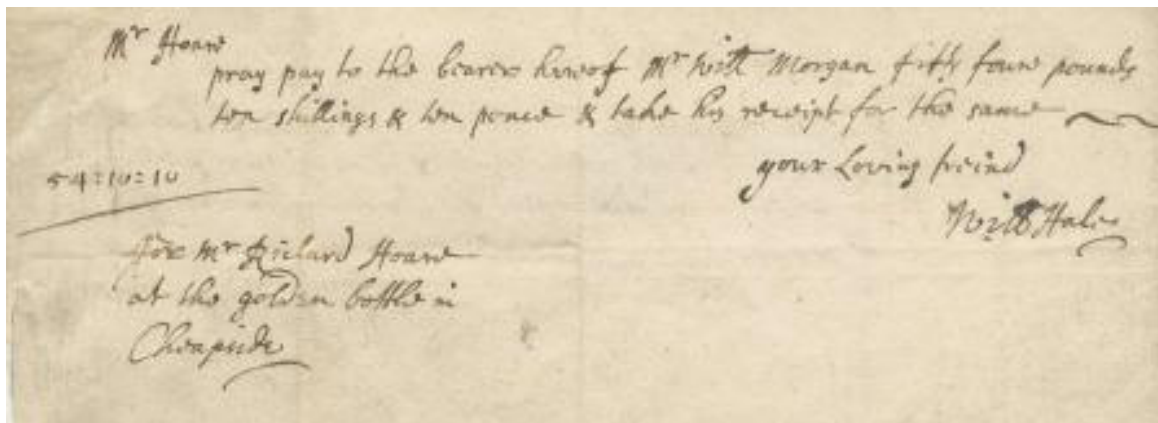 Mr Hoare
pray pay to the bearer hereof Mr Will Morgan fifty foure pounds
ten shillings & ten pence & take his receipt for the same
your Loving freind
Will Hale
54:10:10
For Mr Richard Hoare
at the golden bottle in
Cheapside